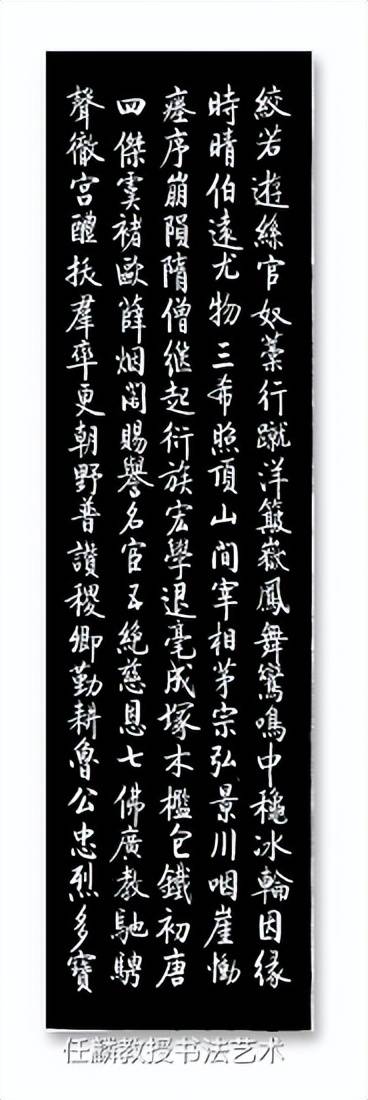 絞若遊絲官奴藁行蹴洋簸嶽鳳舞鸞鳴中穐冰輪因緣
時晴伯遠尤物三希照頂山間宰相茅宗弘景川咽崖慟
瘞序崩隕隋僧继起衍族宏學退毫成塚木檻包鐵初唐
四傑虞褚歐薛烟閣賜譽名官五絶慈恩七佛廣教馳騁
聲徹宫醴扶羣率更朝野普讃稷卿勤耕魯公忠烈多寶
任麟教授书法艺术